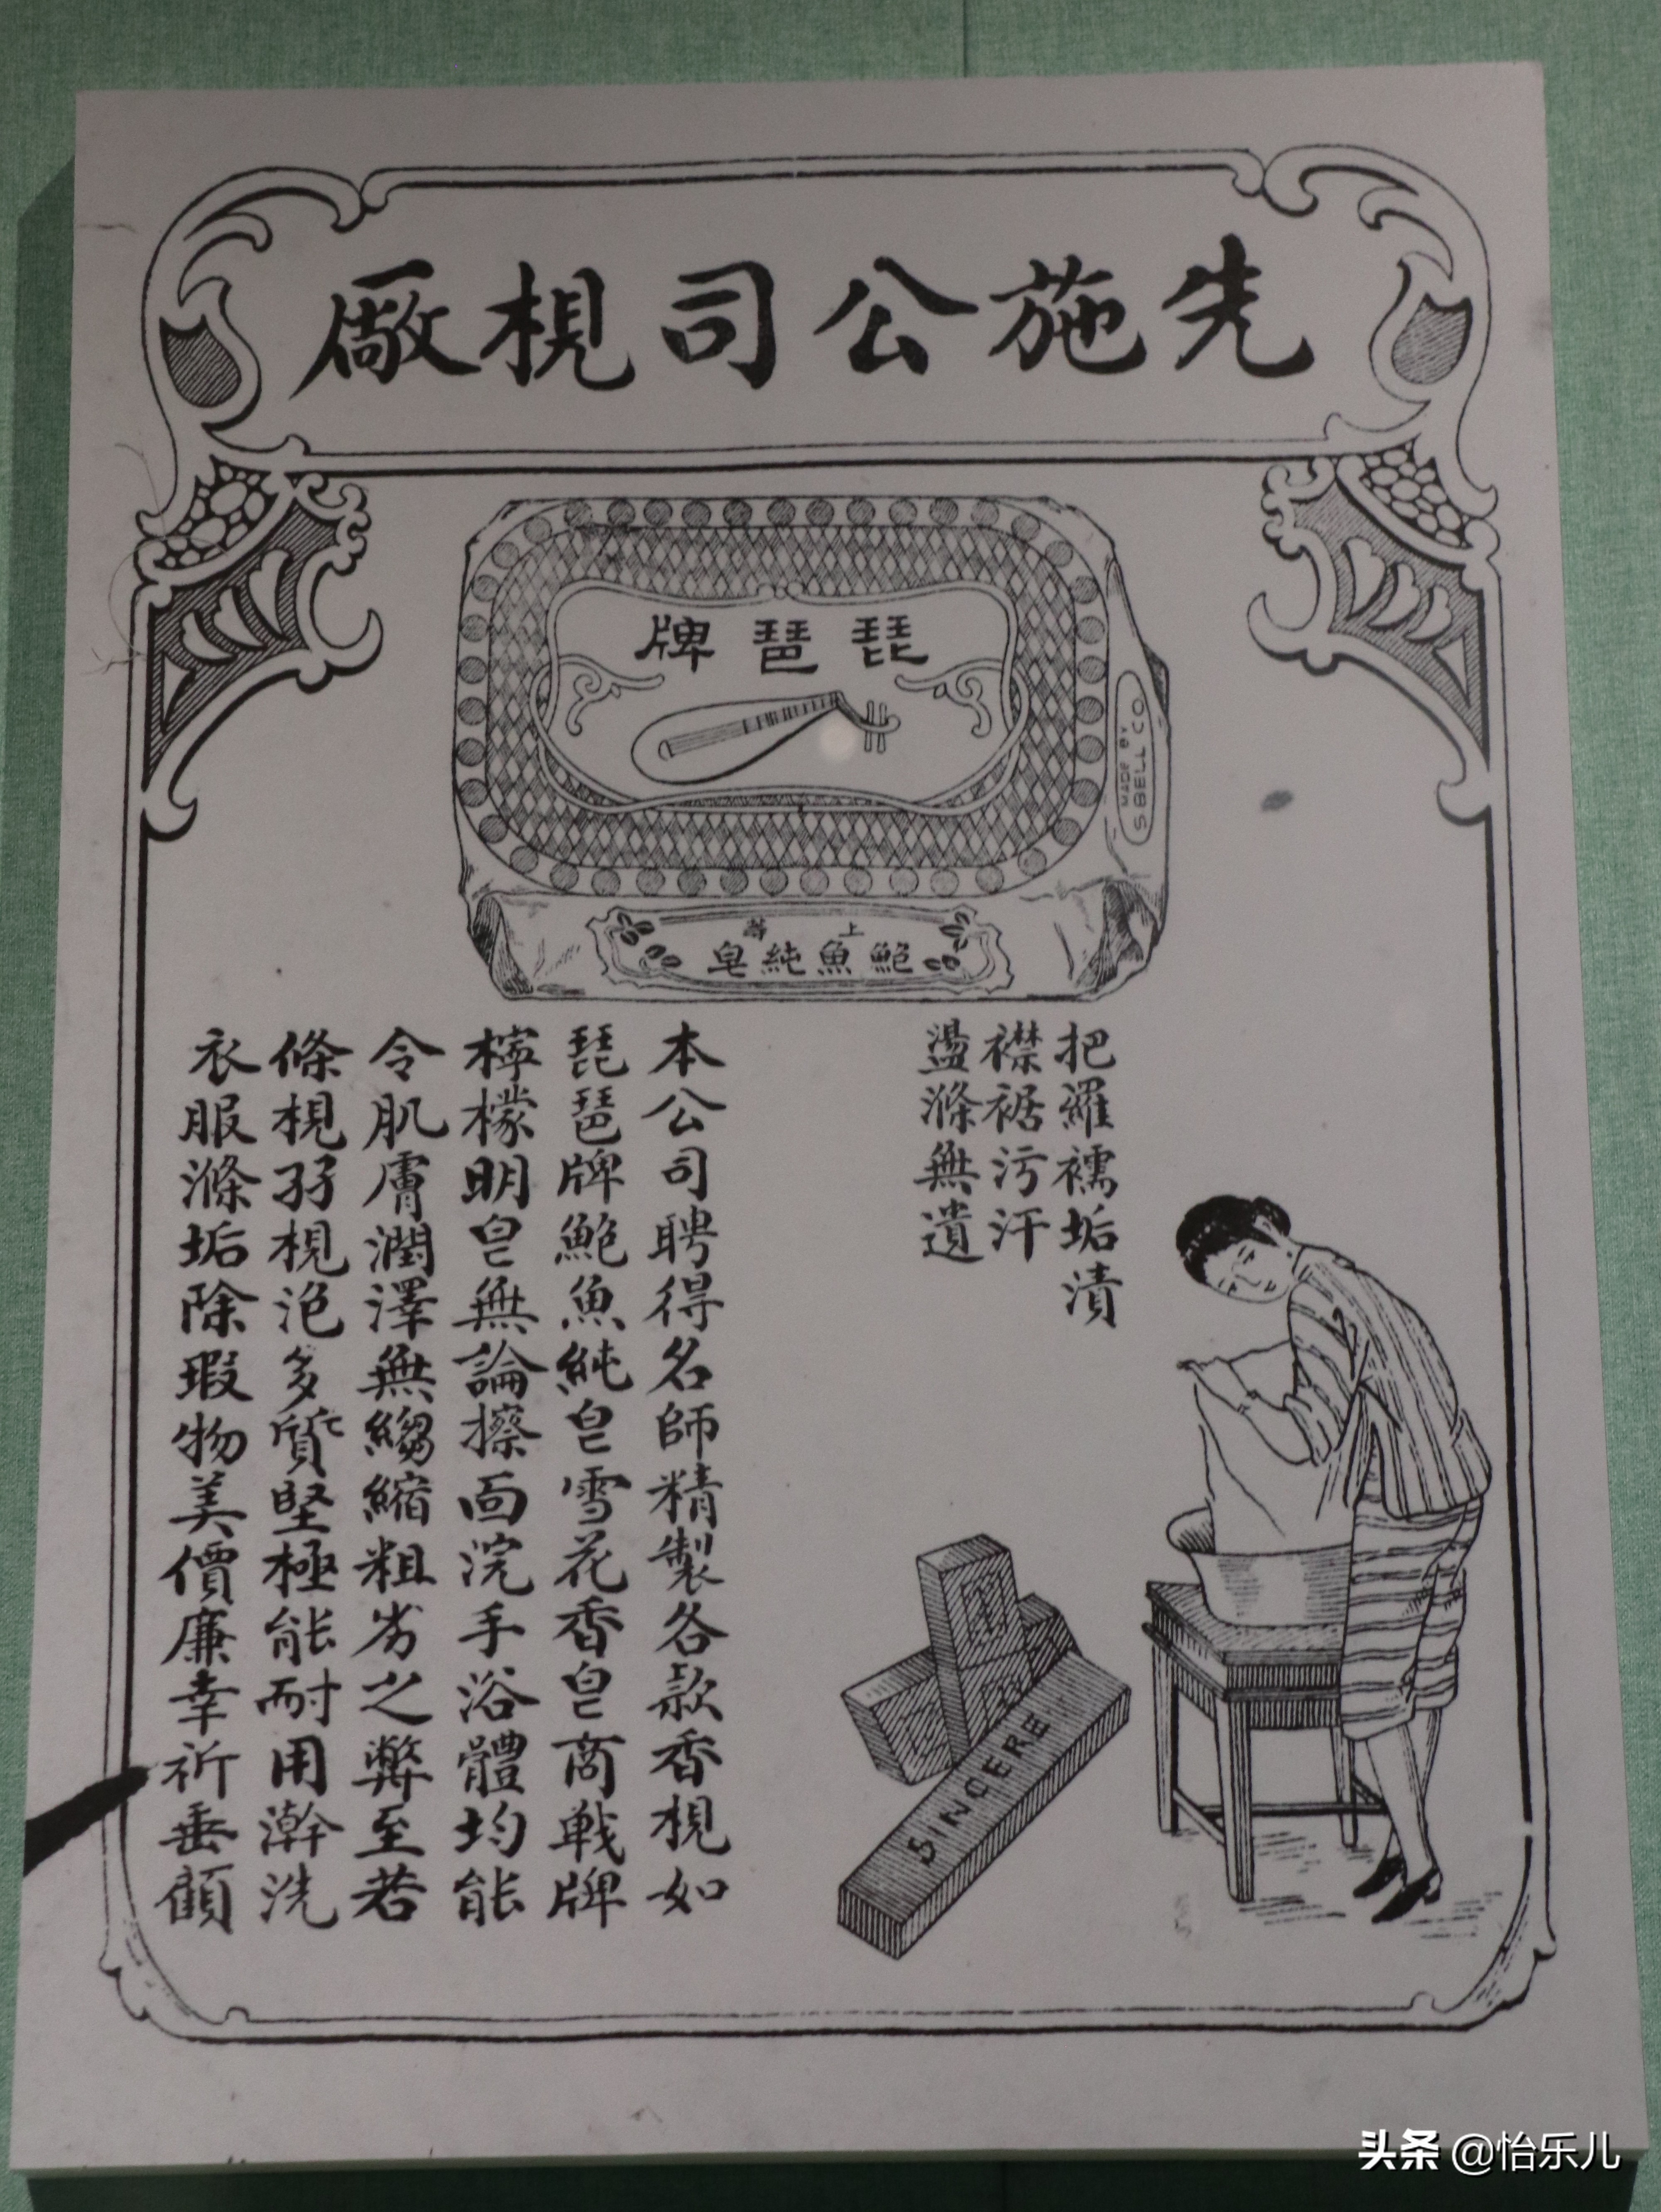 先施公司梘廠
琵琶牌
MADE BY
S.BELL CO
上等
鮑魚純皂
把羅襦垢漬
襟裾污汗
盪滌無遺
本公司聘得名師精製各款香梘如
琵琶牌鮑魚純皂雪花香皂商戰牌
檸檬明皂無論擦面浣手浴體均能
令肌膚潤澤無縐縮粗劣之弊至若
條梘孖梘泡多質堅極能耐用澣洗
衣服滌垢除瑕物美價廉幸祈垂顧
SINCERE
头条 @怡乐儿